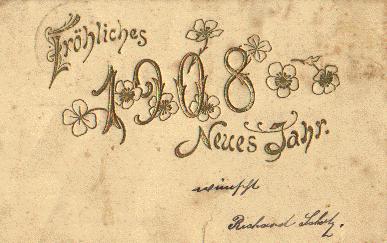 Fröhliches
1908
Neues Jahr.
wünscht
Richard